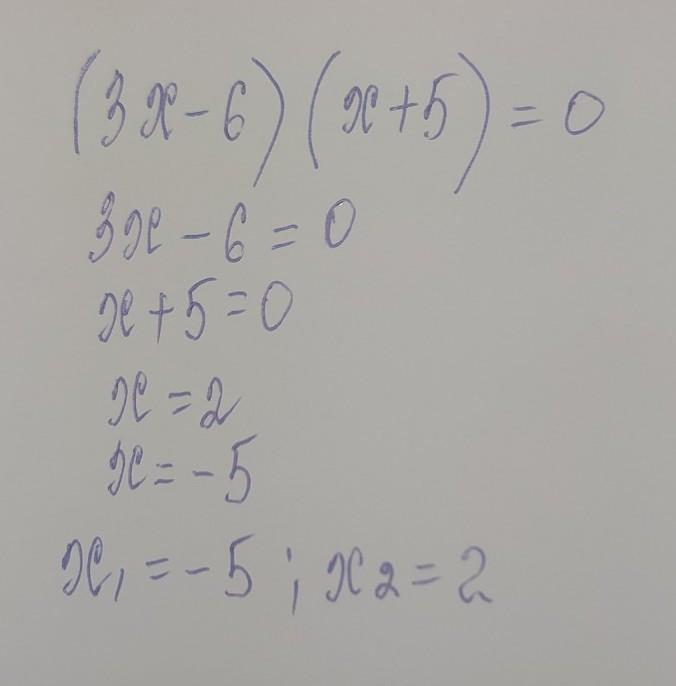 (3x-6)(x+5)=0
3x-6=0
x+5=0
x=2
x=-5
x₁=-5; x₂=2